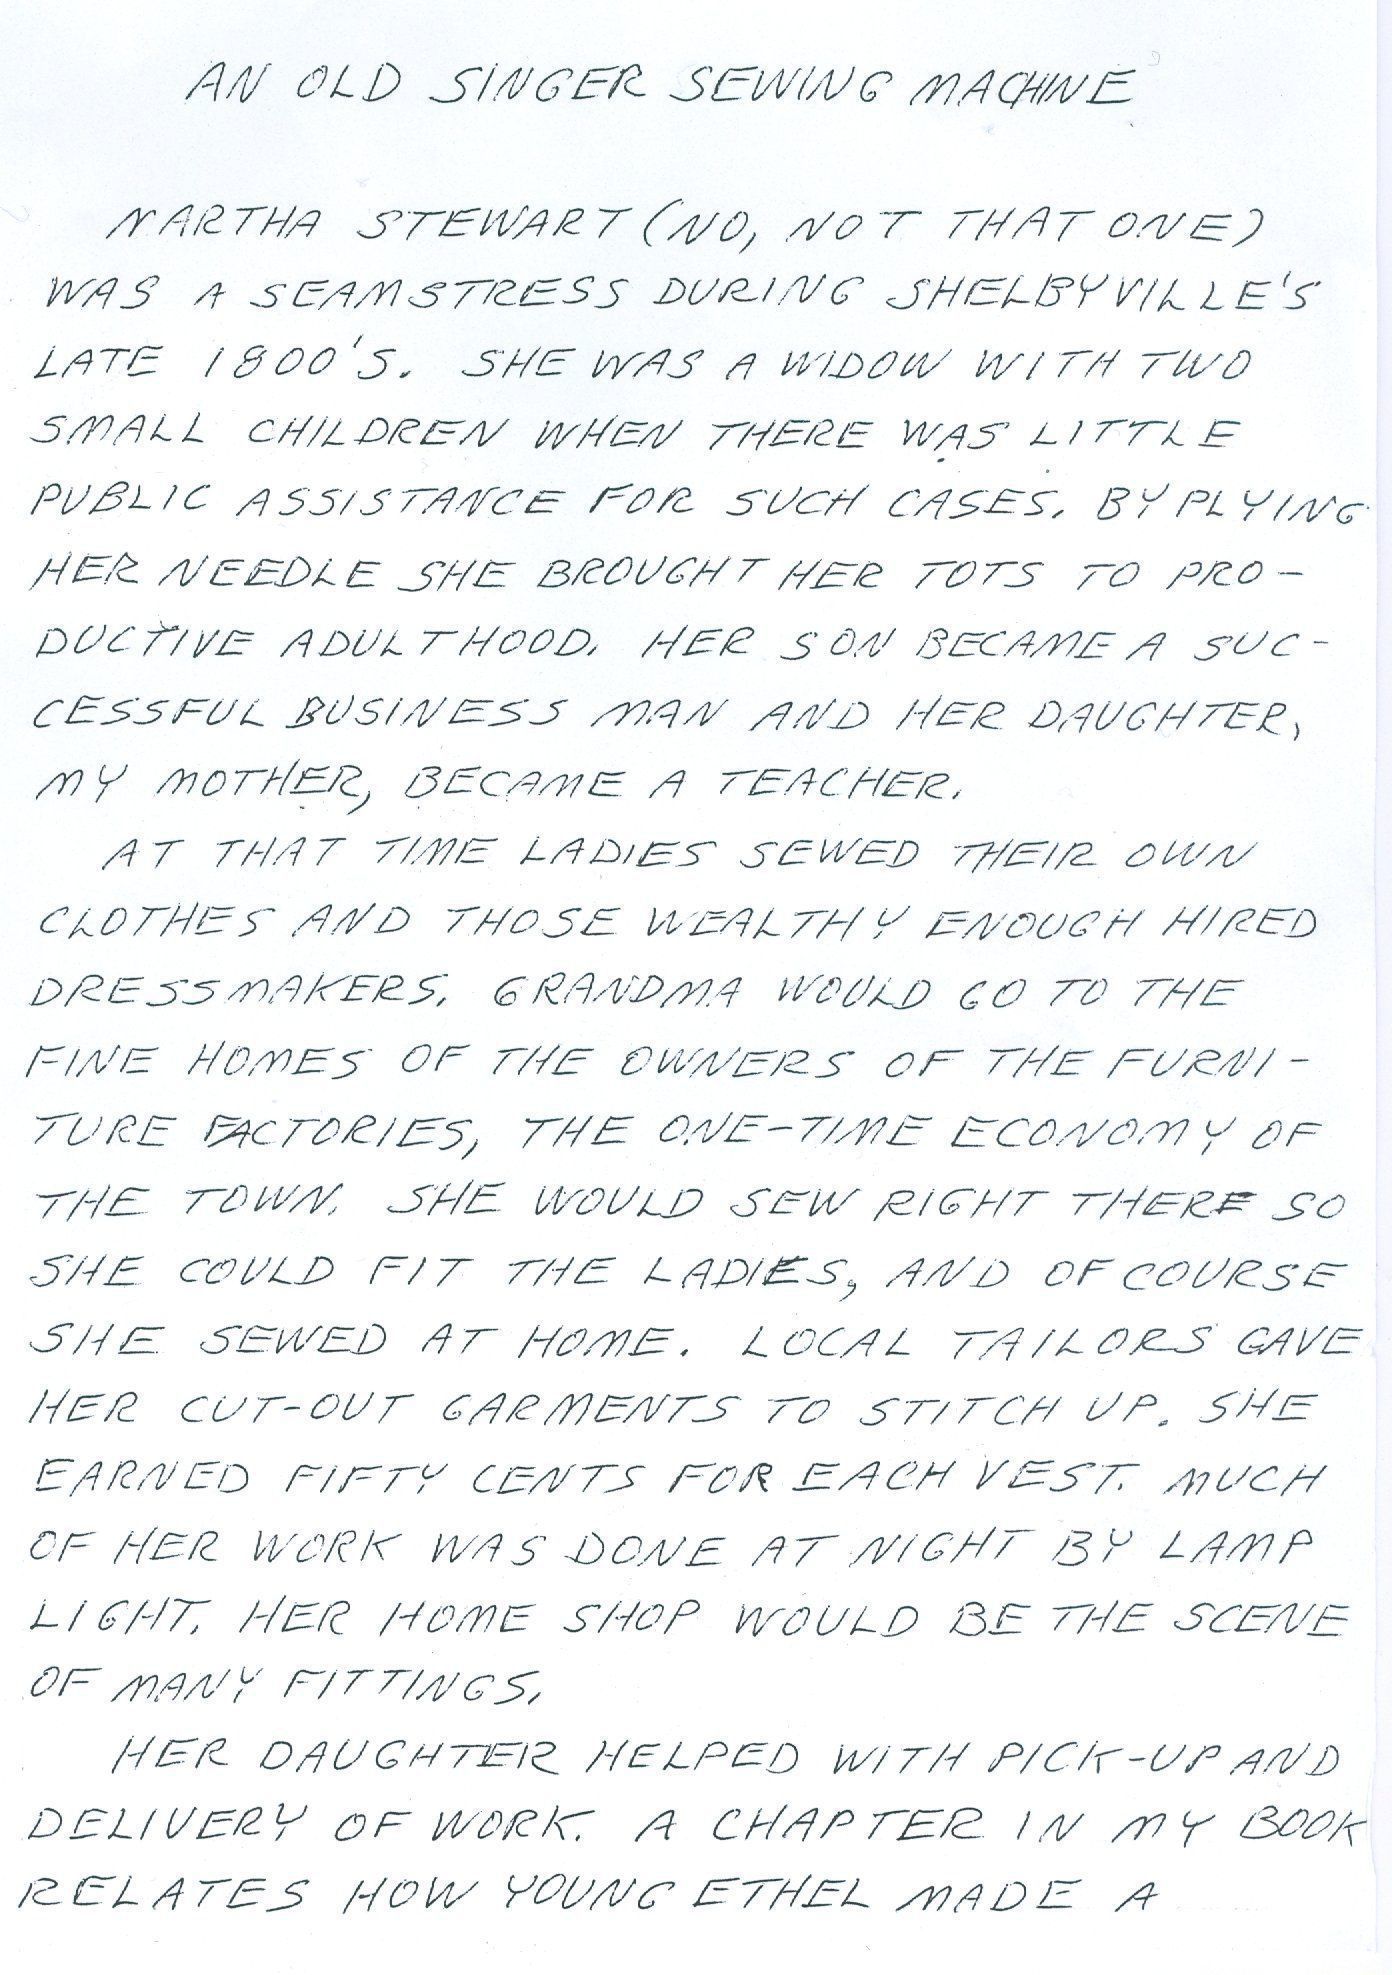 AN OLD SINGER SEWING MACHINE
MARTHA STEWART (NO, NOT THAT ONE)
WAS A SEAMSTRESS DURING SHELBYVILLE'S
LATE 1800'S. SHE WAS A WIDOW WITH TWO
SMALL CHILDREN WHEN THERE WAS LITTLE
PUBLIC ASSISTANCE FOR SUCH CASES. BY PLYING
HER NEEDLE SHE BROUGHT HER TOTS TO PRO-
DUCTIVE ADULTHOOD. HER SON BECAME A SUC-
CESSFUL BUSINESS MAN AND HER DAUGHTER,
MY MOTHER, BECAME A TEACHER.
AT THAT TIME LADIES SEWED THEIR OWN
CLOTHES AND THOSE WEALTHY ENOUGH HIRED
DRESSMAKERS. GRANDMA WOULD GO TO THE
FINE HOMES OF THE OWNERS OF THE FURNI-
TURE FACTORIES, THE ONE-TIME ECONOMY OF
THE TOWN. SHE WOULD SEW RIGHT THERE SO
SHE COULD FIT THE LADIES, AND OF COURSE
SHE SEWED AT HOME. LOCAL TAILORS GAVE
HER CUT-OUT GARMENTS TO STITCH UP. SHE
EARNED FIFTY CENTS FOR EACH VEST. MUCH
OF HER WORK WAS DONE AT NIGHT BY LAMP
LIGHT. HER HOME SHOP WOULD BE THE SCENE
OF MANY FITTINGS.
HER DAUGHTER HELPED WITH PICK-UP AND
DELIVERY OF WORK. A CHAPTER IN MY BOOK
RELATES HOW YOUNG ETHEL MADE A